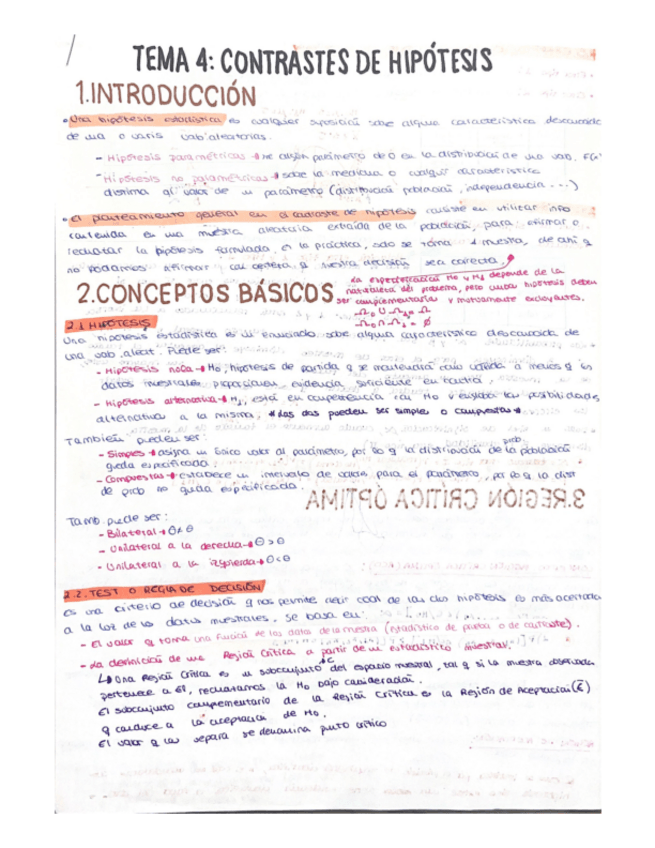 TEMA 4: CONTRASTES DE HIPÓTESIS
1.INTRODUCCIÓN
• Una hipótesis estadística es cualquier suposición sobre alguna característica desconocida
de una o varias vab. aleatorias.
- Hipótesis paramétricas → Me algún parámetro de θ en la distribución de una vab. F(x)
- Hipótesis no paramétricas → sobre la mediana o cualquier característica
distinta al valor de un parámetro (distribución población, independencia...)
• El planteamiento general en el contraste de hipótesis consiste en utilizar info
contenida en una muestra aleatoria extraída de la población, para afirmar o
rechazar la hipótesis formulada, en la práctica, solo se toma 1 muestra, de ahí q
no podamos afirmar con certeza q nuestra decisión sea correcta.
2.CONCEPTOS BÁSICOS
La especificación H₀ y H₁ depende de la
naturaleza del problema, pero ambas hipótesis deben
ser complementaria y mutuamente excluyentes.
Ω₀ U Ω₁ = Ω
Ω₀ ∩ Ω₁ = ∅
2.1 HIPÓTESIS
Una hipótesis estadística es un enunciado sobre alguna característica desconocida de
una vab. aleat. Puede ser:
- Hipótesis nula → H₀, hipótesis de partida q se mantendrá como válida a menos q los
datos muestrales proporcionen evidencia suficiente en contra.
- Hipótesis alternativa → H₁, está en competencia con H₀ y engloba las posibilidades
alternativas a la misma, * las dos pueden ser simples o compuestas *
También pueden ser:
- Simples → asigna un único valor al parámetro, por lo q la distribución de prob la población
queda especificada.
- Compuestas → establece un intervalo de valores para el parámetro, por lo q la distr
de prob no queda especificada.
3.REGIÓN CRÍTICA ÓPTIMA
Tamb. puede ser:
- Bilateral → θ ≠ θ
- Unilateral a la derecha → θ > θ
- Unilateral a la izquierda → θ < θ
2.2. TEST O REGLA DE DECISIÓN
es una criterio de decisión q nos permite decir cual de las dos hipótesis es más acertada
a la luz de los datos muestrales, se basa en:
- El valor q toma una función de los datos de la muestra (estadístico de prueba o de contraste).
- La definición de una Región Crítica a partir de un estadístico muestral.
↳ Una Región Crítica es un subconjunto C del espacio muestral, tal q si la muestra observada
pertenece a él, rechazamos la H₀ bajo consideración.
El subconjunto complementario de la Región Crítica es la Región de Aceptación (C̄)
q conduce a la aceptación de H₀.
El valor q las separa se denomina punto crítico